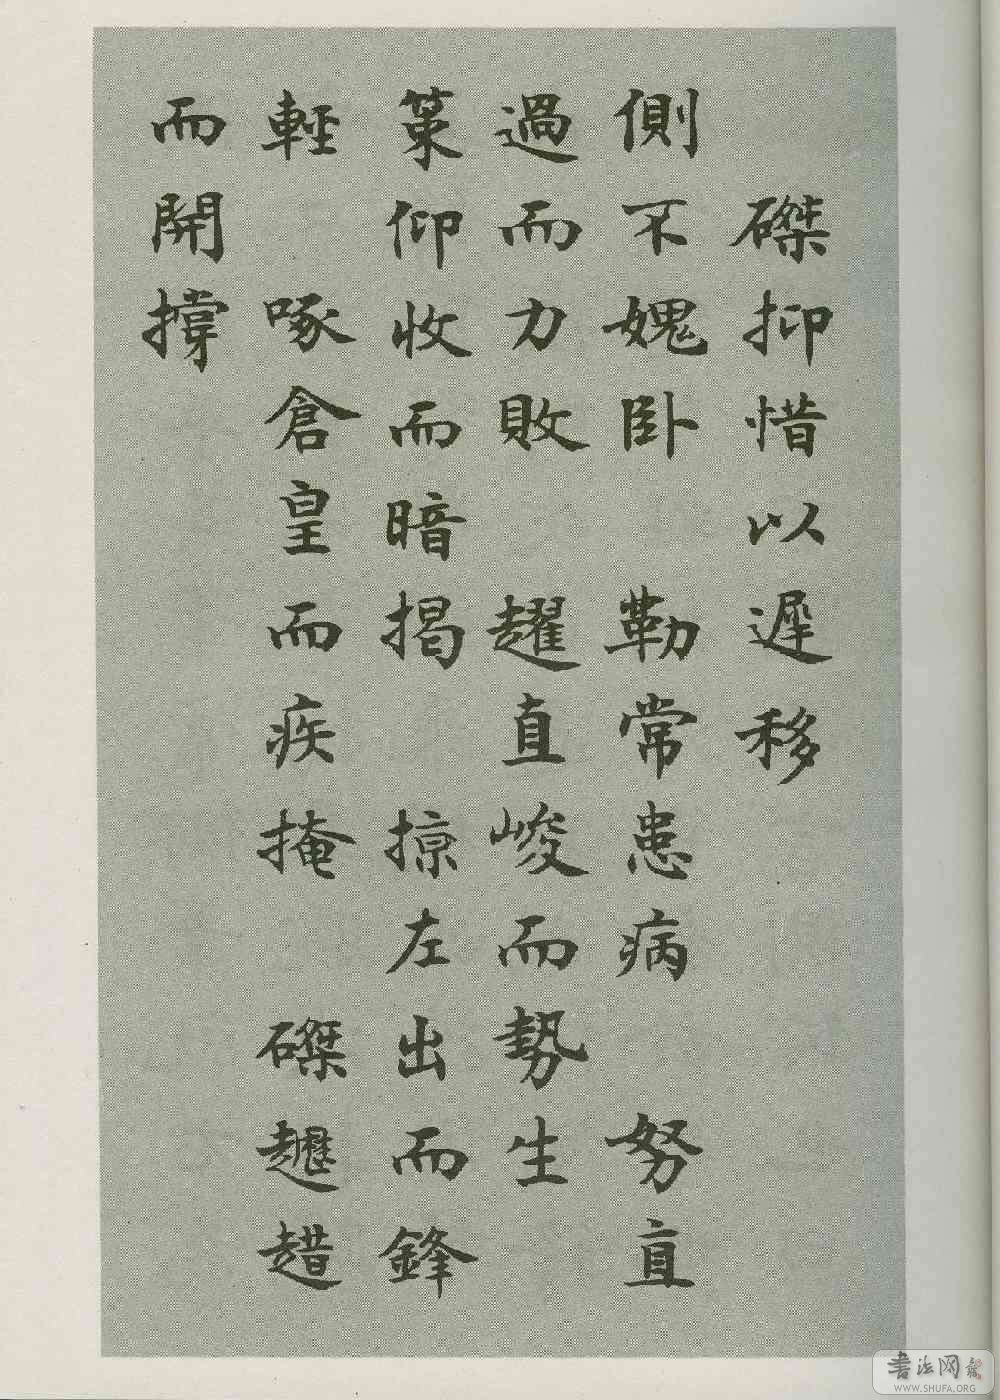 磔抑惜以遲移
側不媿卧 勒常患病 努直
過而力敗 趯直峻而勢生
策仰收而暗揭 掠左出而鋒
輕 啄倉皇而疾掩 磔趯趞
而開撐
书法网
WWW.SHUFA.ORG